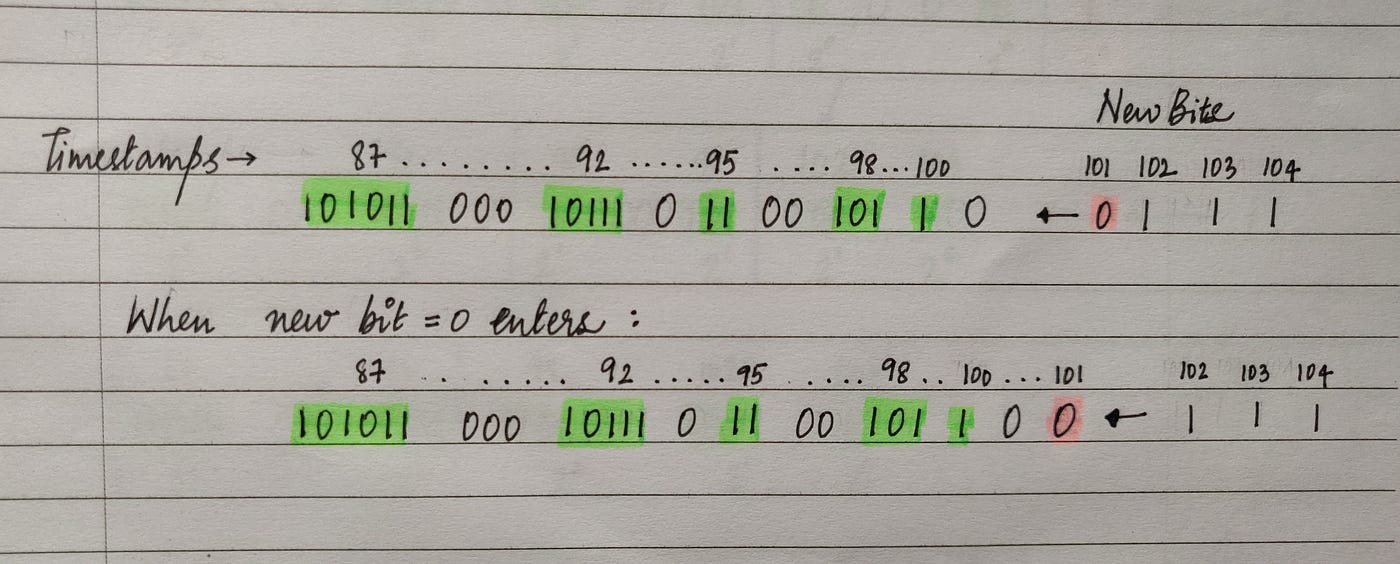 New Bite
Timestamps → 87 . . . . . . . . . 92 . . . . . . 95 . . . . 98 . . . 100 101 102 103 104
101011 000 10111 0 11 00 101 1 0 ← 0 1 1 1
When new bit = 0 enters :
87 . . . . . . . 92 . . . . . 95 . . . . . 98 . . 100 . . . 101 102 103 104
101011 000 10111 0 11 00 101 1 0 0 ← 1 1 1